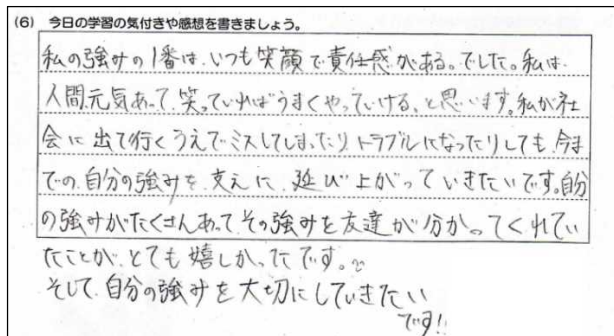 (6) 今日の学習の気付きや感想を書きましょう。
私の強みの1番は、いつも笑顔で責任感がある。でした。私は、
人間元気あって、笑っていればうまくやっていける、と思います。私が社
会に出て行くうえでミスしてしまったり、トラブルになったりしても、今ま
での、自分の強みを、支えに、延び上がっていきたいです。自分
の強みがたくさんあって、その強みを友達が分かってくれてい
たことが、とても嬉しかったです。
そして、自分の強みを大切にしていきたい
です!!